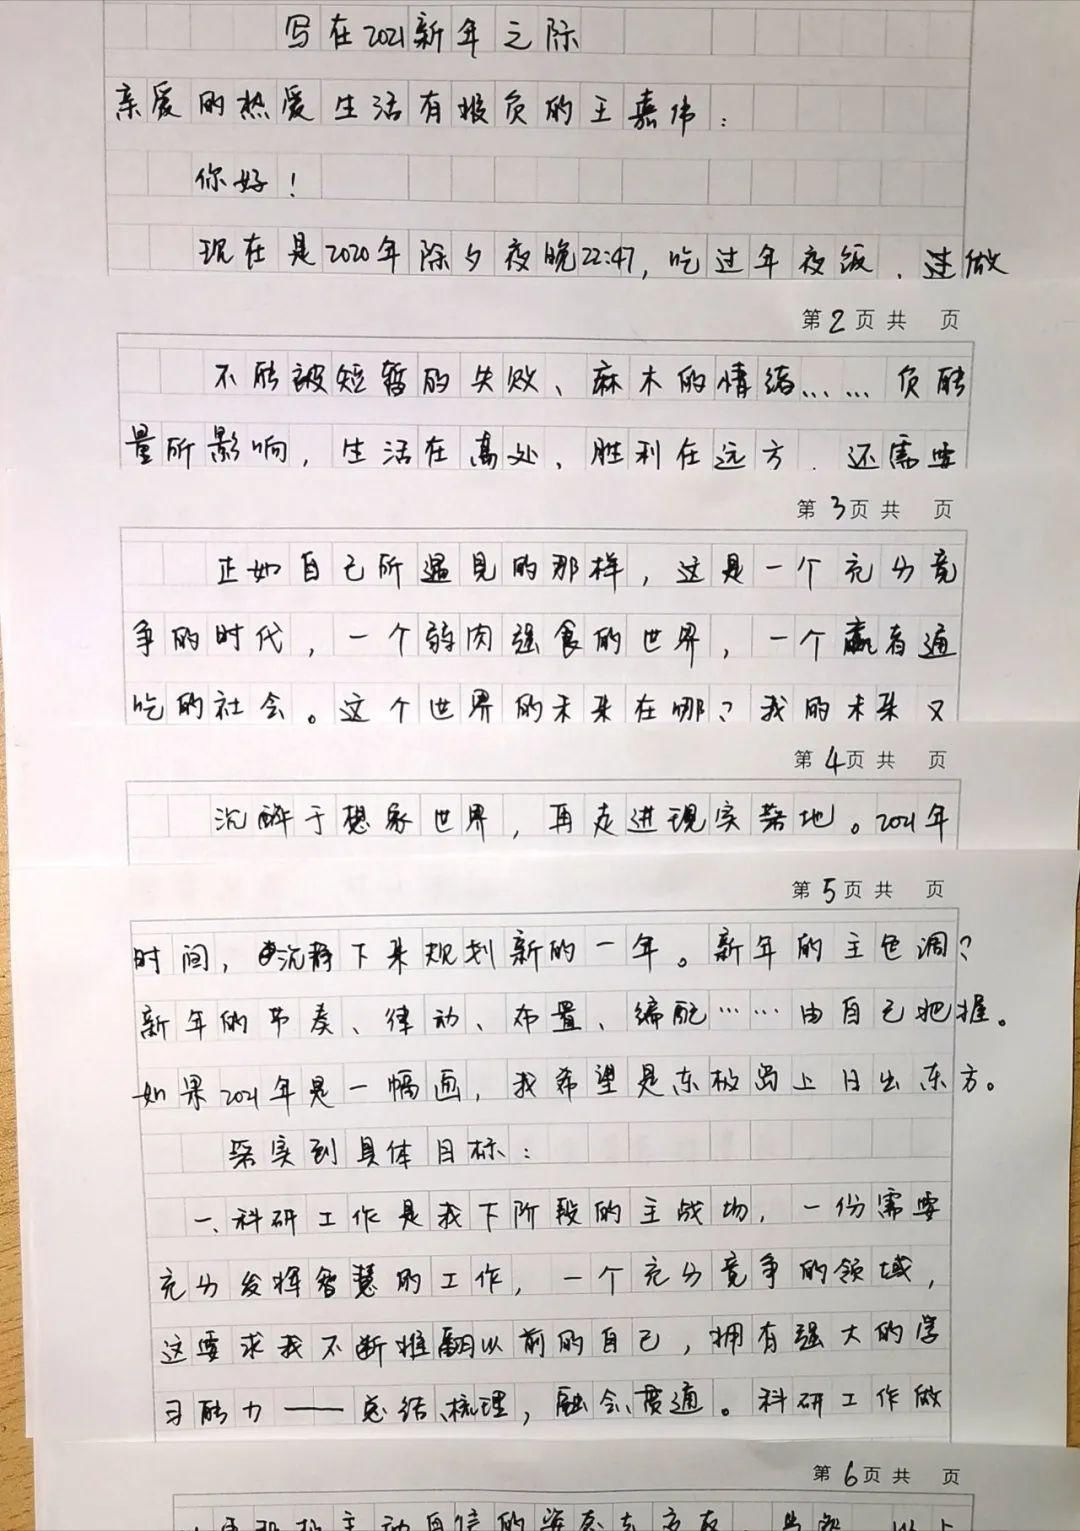 写在2021新年之际
亲爱的热爱生活有报负的王嘉伟：
你好！
现在是2020年除夕夜晚22:47，吃过年夜饭．过做
第2页共 页
不能被短暂的失败、麻木的情绪……负能
量所影响，生活在高处、胜利在远方．还需要
第3页共 页
正如自己所遇见的那样，这是一个充分竞
争的时代，一个弱肉强食的世界，一个赢者通
吃的社会。这个世界的未来在哪？我的未来又
第4页共 页
沉醉于想象世界，再走进现实落地。2021年
第5页共 页
时间，沉静下来规划新的一年。新年的主色调？
新年的节奏、律动、布置、编配……由自己把握。
如果2021年是一幅画，我希望是东极岛上日出东方。
落实到具体目标：
一、科研工作是我下阶段的主战场，一份需要
充分发挥智慧的工作，一个充分竞争的领域，
这要求我不断推翻以前的自己，拥有强大的学
习能力——总结、梳理，融会贯通。科研工作做
第6页共 页
主动自信的姿态去